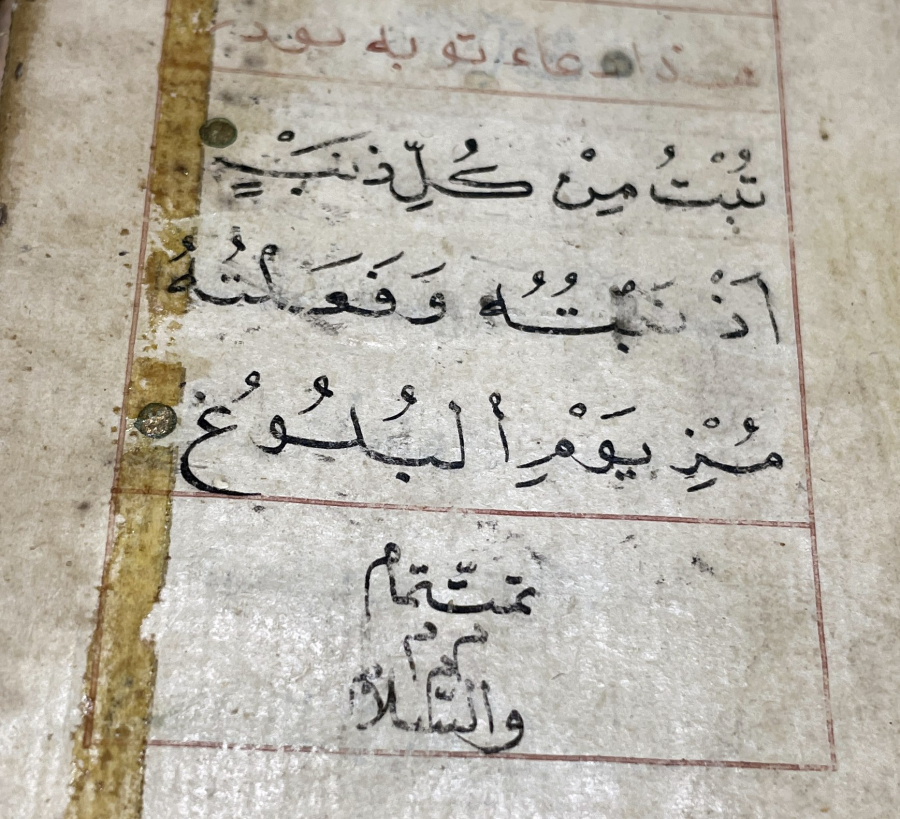 هذا دعاء توبه بودر
تُبْتُ مِنْ كُلِّ ذنبٍ
اَذْ نَبْتُهُ وَفَعَلْتُهُ
مُنْذِ يَوْمِ أ لبُلُوُغ
تمت تمام
م م م
والسلام